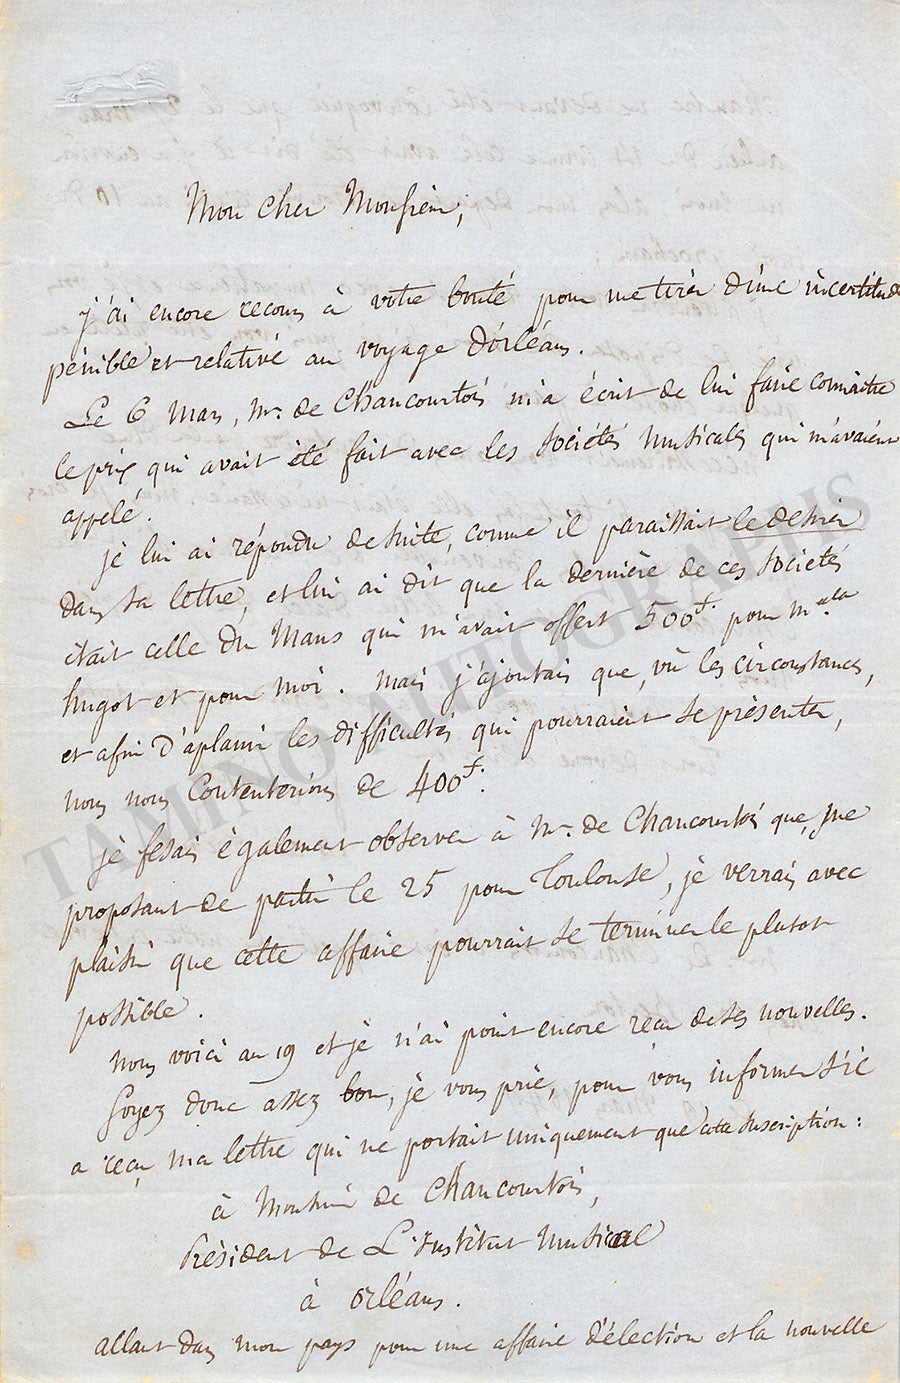 Mon cher Monsieur,
j'ai encore recours à votre bonté pour me tirer d'une incertitude
pénible et relative au voyage d'orléans.
Le 6 Mars, Mr. de Chancourtois m'a écrit de lui faire connaitre
le prix qui avait été fait avec les sociétés musicales qui m'avaient
appelé.
je lui ai répondu de suite, comme il paraissait le desirer
dans sa lettre, et lui ai dit que la dernière de ces sociétés
était celle du Mans qui m'avait offert 500f. pour
hugot et pour moi. Mais j'ajoutais que, vû les circonstances,
et afin d'aplanir les difficultés qui pourraient se présenter,
nous nous contenterions de 400f.
je fesais également observer à Mr. de Chancourtois que, me
proposant de partir le 25 pour Toulouse, je verrais avec
plaisir que cette affaire pourrait se terminer le plutot
possible.
nous voici au 19 et je n'ai point encore reçu de ses nouvelles.
Soyez donc assez bon, je vous prie, pour vous informer s'il
a reçu ma lettre qui ne portait uniquement que cette suscription :
à Monsieur de Chancourtois,
Président de L'institut Musical
à orléans.
allant dans mon pays pour une affaire d'élection et la nouvelle
TAMINO AUTOGRAPHS